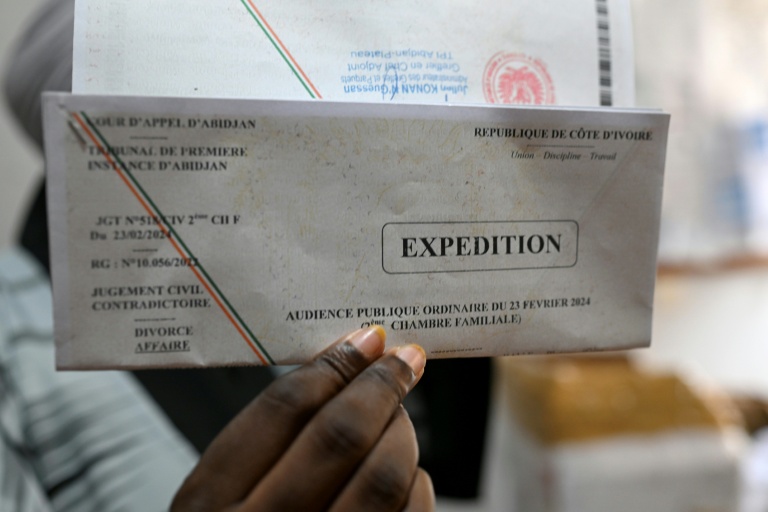 TPI Abidjan-Plateau
Greffier en Chef Adjoint
Administrateur des Greffes et Parquets
KONAN N'Guessan
COUR D'APPEL D'ABIDJAN
TRIBUNAL DE PREMIERE
INSTANCE D'ABIDJAN
REPUBLIQUE DE CÔTE D'IVOIRE
Union – Discipline – Travail
JGT N°518/CIV 2ème CH F
Du 23/02/2024
RG : N°10.056/2022
EXPEDITION
JUGEMENT CIVIL
CONTRADICTOIRE
AUDIENCE PUBLIQUE ORDINAIRE DU 23 FEVRIER 2024
(2ème CHAMBRE FAMILIALE)
DIVORCE
AFFAIRE